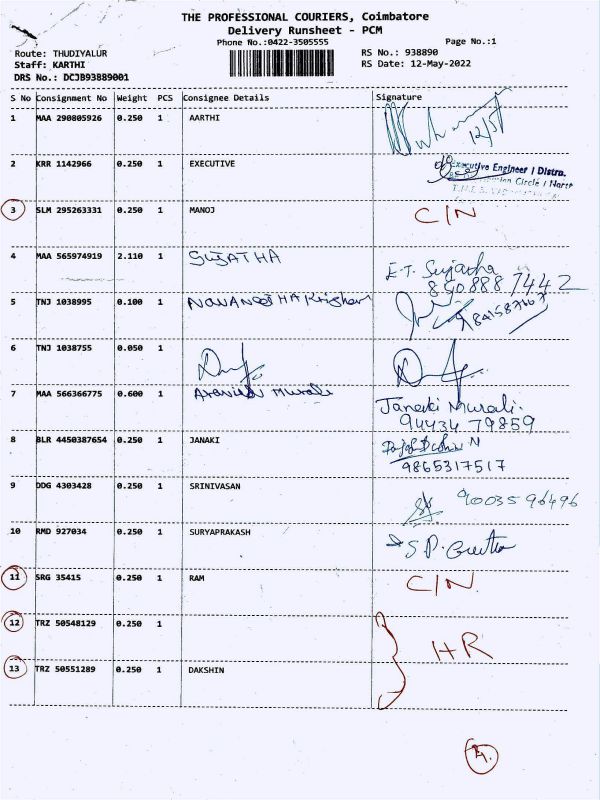 THE PROFESSIONAL COURIERS, Coimbatore
Delivery Runsheet - PCM
Phone No.:0422-3505555
Page No.:1
Route: THUDIYALUR
RS No.: 938890
Staff: KARTHI
RS Date: 12-May-2022
DRS No.: DCJB93889001
S No Consignment No Weight PCS Consignee Details Signature
1 MAA 290805926 0.250 1 AARTHI 12/5
2 KRR 1142966 0.250 1 EXECUTIVE
Executive Engineer / Distn.
Circle / North
3 SLM 295263331 0.250 1 MANOJ C/N
4 MAA 565974919 2.110 1 SUJATHA
E.T. Sujatha
850888 7442
5 TNJ 1038995 0.100 1 NAVANEETHAKrishnan
6 TNJ 1038755 0.050 1
7 MAA 566366775 0.600 1 Aravind Murali
Janaki Murali.
94434 79859
8 BLR 4450387654 0.250 1 JANAKI
9865317517
9 DDG 4303428 0.250 1 SRINIVASAN
90035 96496
10 RMD 927034 0.250 1 SURYAPRAKASH
S.P.
11 SRG 35415 0.250 1 RAM C/N.
12 TRZ 50548129 0.250 1
HR
13 TRZ 50551289 0.250 1 DAKSHIN